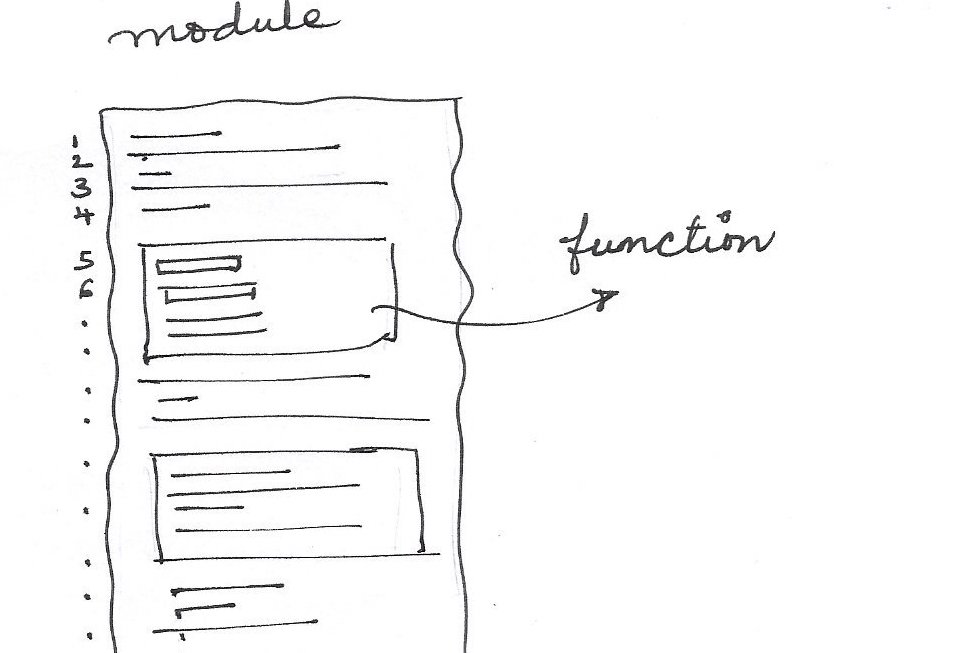 module
1
2
3
4
function
5
6